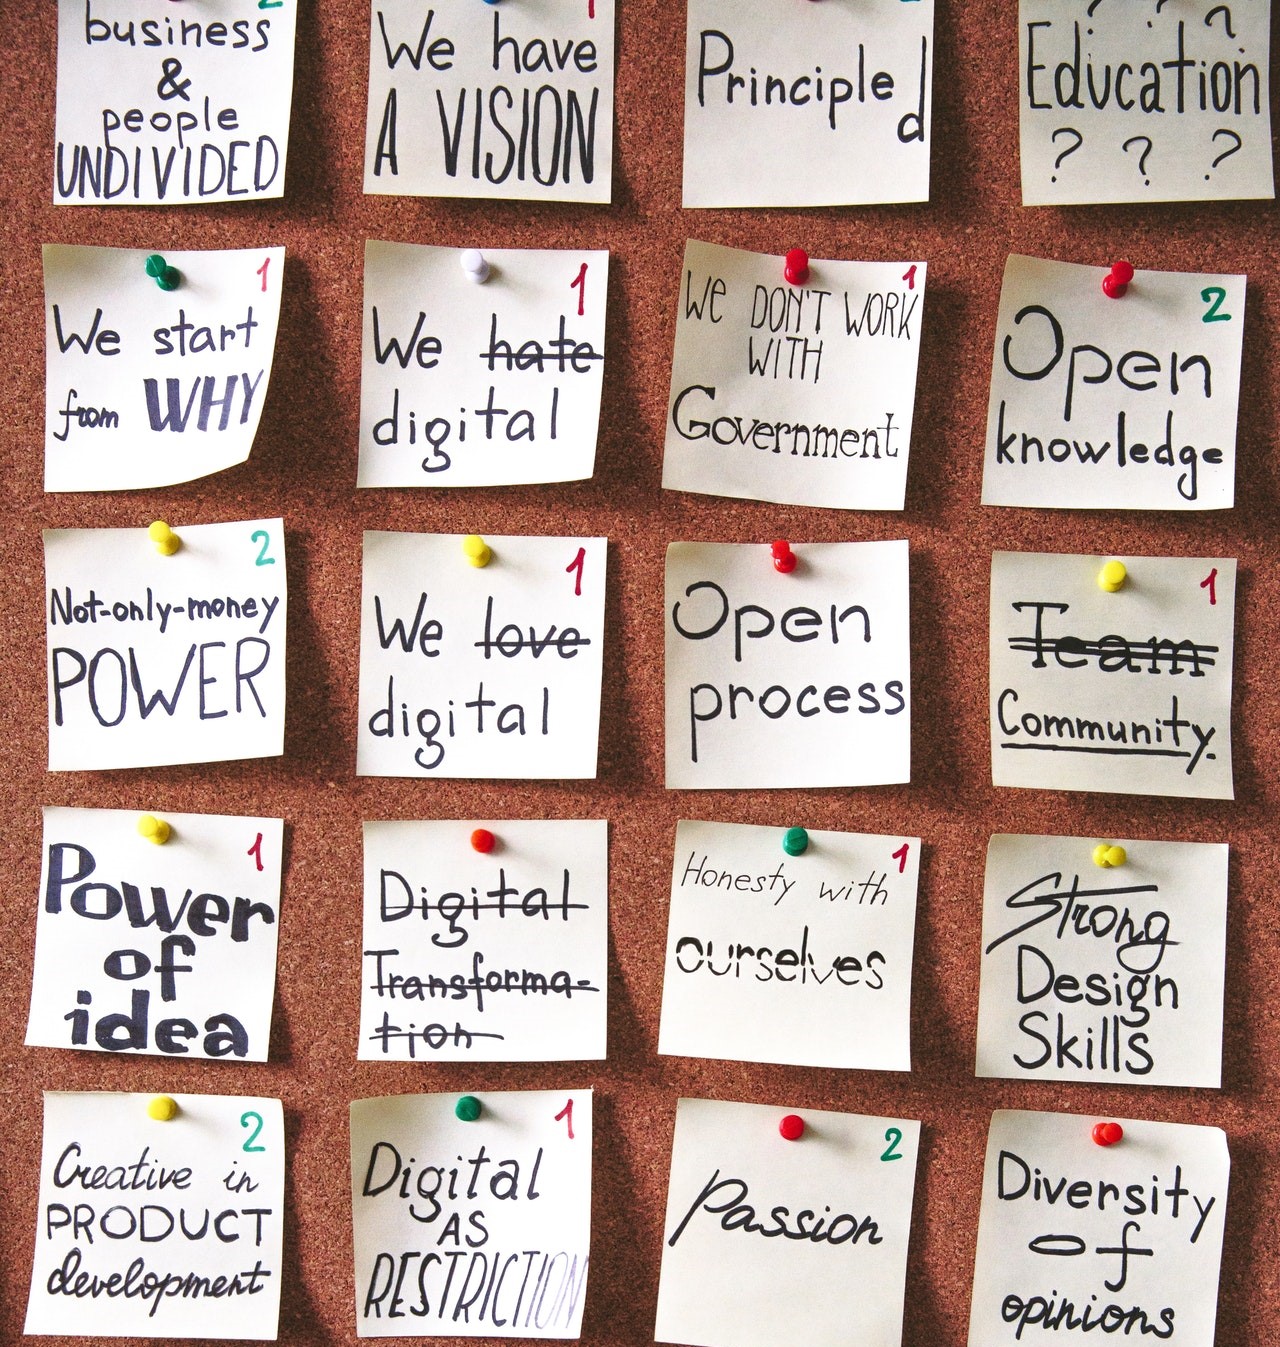 business
&
people
UNDIVIDED
1
We have
A VISION
Principled
? ? ?
Education
? ? ?
1
We start
from WHY
1
We hate
digital
1
We DON'T WORK
WITH
Government
2
Open
knowledge
2
Not-only-money
POWER
1
We love
digital
Open
process
1
Team
Community.
1
Power
of
idea
Digital
Transforma-
tion
1
Honesty with
ourselves
Strong
Design
Skills
2
Creative in
PRODUCT
development
1
Digital
AS
RESTRICTION
2
Passion
Diversity
of
opinions